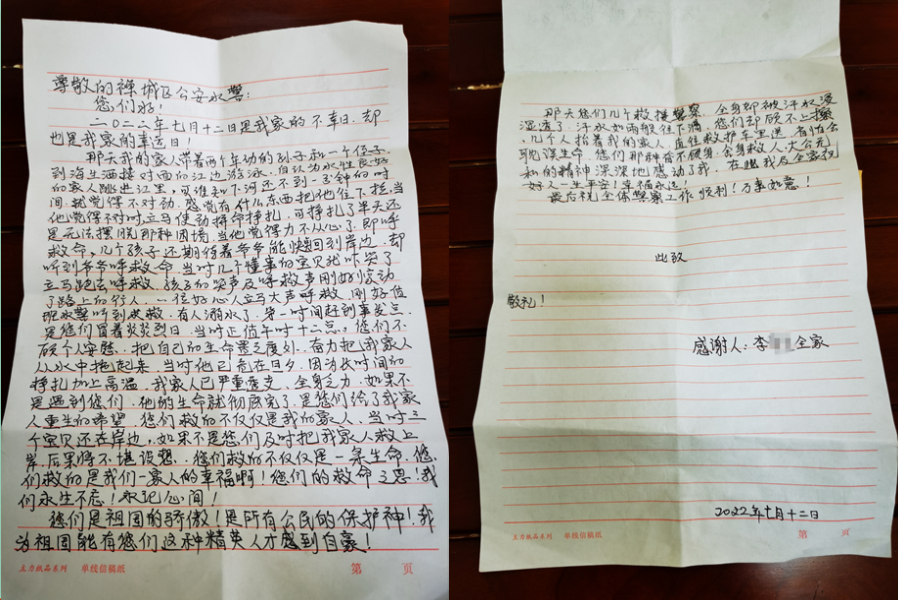 尊敬的禅城区公安水警:
您们好!
二〇二二年七月十二日是我家的不幸日,却
也是我家的幸运日!
那天我的家人带着两个年幼的孙子和一个侄子,
到海生酒楼对面的江边游泳,自认为水性良好
的家人跳进江里,可谁知下河还不到一分钟的时
间,就觉得不对劲,感觉有什么东西把他往下拉,当
他觉得不对时,立马使劲拼命挣扎,可挣扎了半天还
是无法摆脱那种困境,当他觉得力不从心了,即呼
救命,几个孩子还期待着爷爷能快回到岸边,却
听到爷爷呼救命,当时几个懂事的宝贝就吓哭了
立马跑去呼救,孩子的哭声及呼救声刚好惊动
了路上的行人,一位好心人立马大声呼救,刚好值
班水警听到求救,有人溺水了,第一时间赶到事发点
是您们冒着炎炎烈日,当时正值午时十二点,您们不
顾个人安危,把自己的生命置之度外,奋力把我家人
从水中拖起来,当时他已危在旦夕,因为长时间的
挣扎加上高温,我家人已严重透支,全身乏力,如果不
是遇到您们,他的生命就彻底完了,是您们给了我家
人重生的希望,您们救的不仅仅是我的家人,当时三
个宝贝还在岸边,如果不是您们及时把我家人救上
岸,后果将不堪设想,您们救的不仅仅是一条生命,您
们救的是我们一家人的幸福啊!您们的救命之恩!我
们永生不忘!永记心间!
您们是祖国的骄傲!是所有公民的保护神!我
为祖国能有您们这种精英人才感到自豪!
立方纸品系列 单线信稿纸 第 页
那天您们几个救援警察,全身即被汗水浸
湿透了,汗水如雨般往下滴,您们却顾不上擦
,几个人抬着我的家人,直往救护车里送,害怕会
耽误生命,您们那种奋不顾身,舍身救人,大公无
私的精神深深地感动了我,在此我及全家祝
好人一生平安!幸福永远!
最后祝全体警察工作顺利!万事如意!
此致
敬礼!
感谢人:李 全家
2022年七月十二日
立方纸品系列 单线信稿纸 第 页